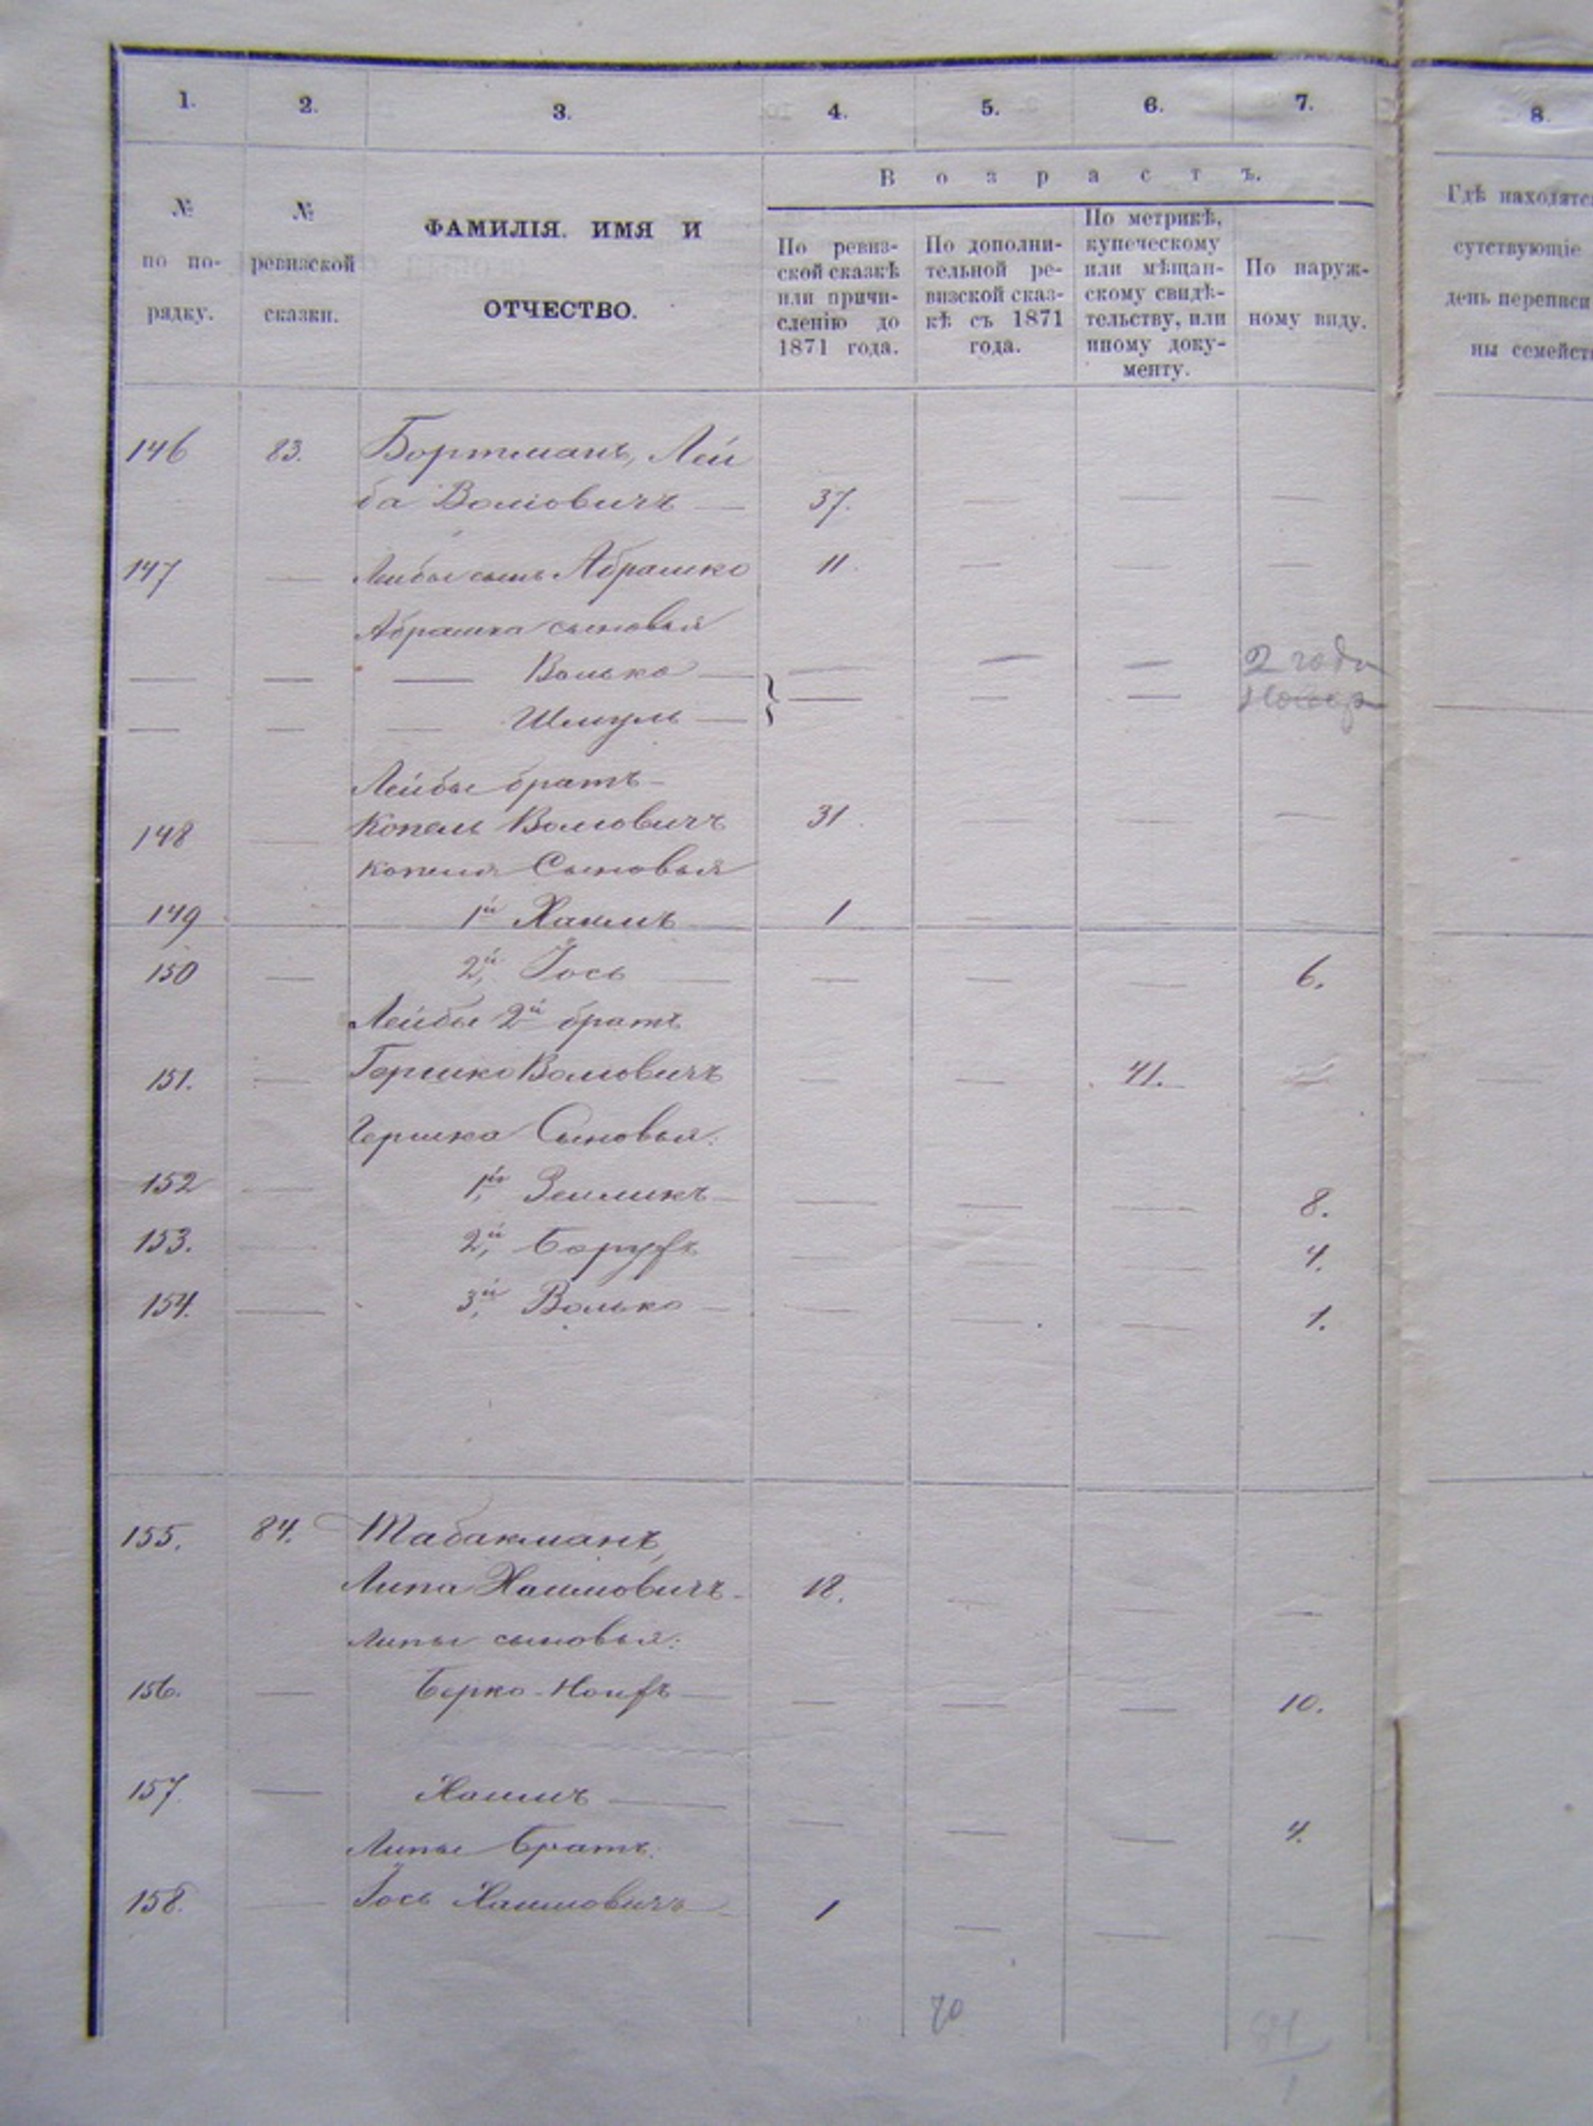 1. 2. 3. 4. 5. 6. 7. 8.
Возрастъ.
№ по порядку.
№ ревизской сказки.
ФАМИЛІЯ. ИМЯ И
ОТЧЕСТВО.
По ревиз-
ской сказкѣ
или причи-
сленію до
1871 года.
По дополни-
тельной ре-
визской сказ-
кѣ съ 1871
года.
По метрикѣ,
купеческому
или мѣщан-
скому свидѣ-
тельству, или
иному доку-
менту.
По наруж-
ному виду.
Гдѣ находятс
сутствующіе
день переписи
ны семейст
146 83. Бортманъ, Лей
ба Волковичъ — 37. — — —
147 — Лейбы сынъ Абрашко 11. — — —
Абрашка сыновья
— — — Волько — } — — — 2 года
— — — Шмуль — — — —
Лейбы братъ —
148 — Копель Волковичъ 31. — — —
Копеля Сыновья
149 1й Хаимъ — 1 — — —
150 — 2й Іось — — — — 6.
Лейбы 2й братъ
151. — Гершко Волковичъ — — 41. —
Гершка Сыновья:
152 — 1й Зеликъ — — — — 8.
153. — 2й Борухъ — — — 4.
154. — 3й Волько — — — — 1.
155. 84. Табакманъ,
Липа Хаимовичъ — 18. — — —
Липы сыновья:
156. — Берко- — — — — 10.
157. — Хаимъ — — — — 4.
Липы братъ:
158. — Іось Хаимовичъ — 1 — — —